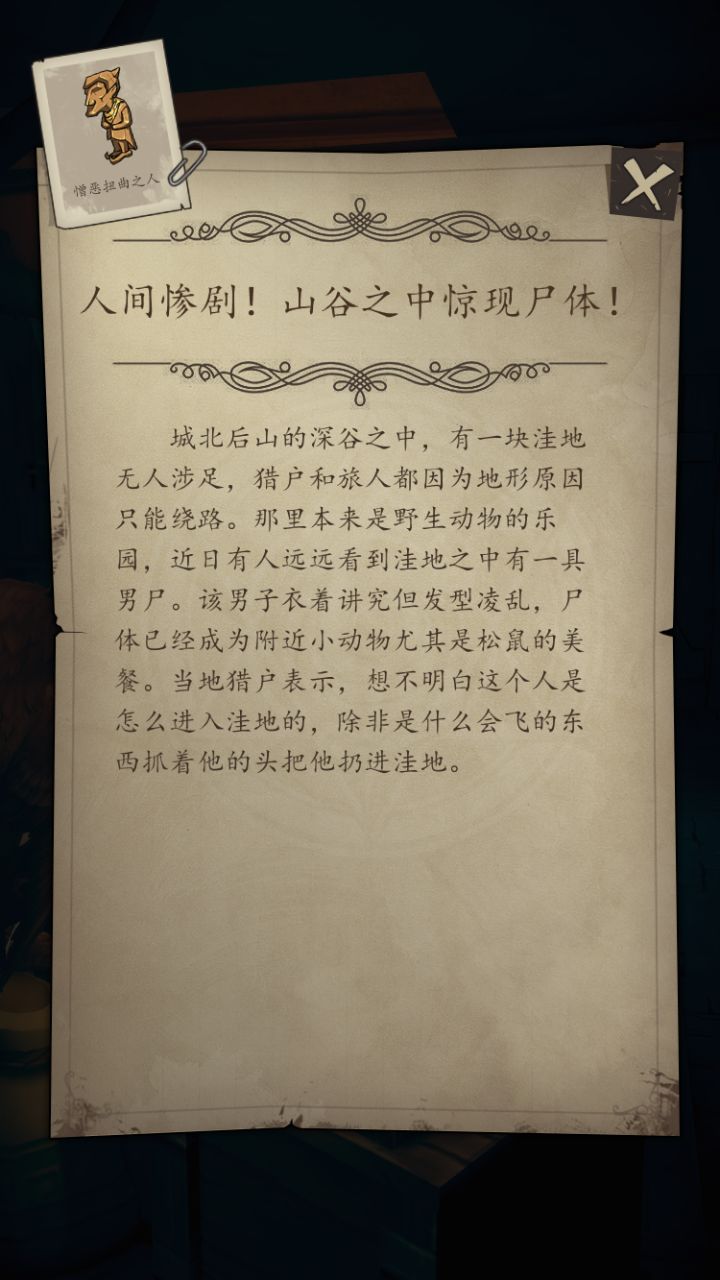 憎恶扭曲之人
人间惨剧！山谷之中惊现尸体！
城北后山的深谷之中，有一块洼地
无人涉足，猎户和旅人都因为地形原因
只能绕路。那里本来是野生动物的乐
园，近日有人远远看到洼地之中有一具
男尸。该男子衣着讲究但发型凌乱，尸
体已经成为附近小动物尤其是松鼠的美
餐。当地猎户表示，想不明白这个人是
怎么进入洼地的，除非是什么会飞的东
西抓着他的头把他扔进洼地。